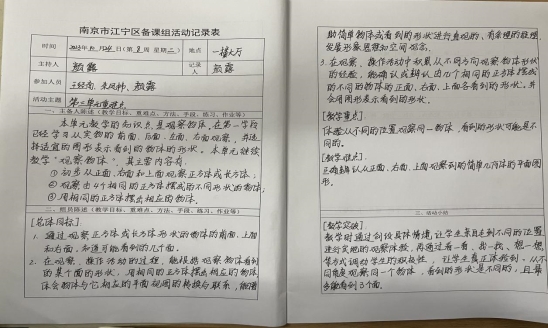 南京市江宁区备课组活动记录表
时间 (第8周 星期三) 地点 一楼大厅
主持人 颜露 记录人 颜露
参加人员 颜露
活动主题 第三单元重难点
一、主备人陈述(教学目标、重难点、方法、手段、练习、作业等)
本单元教学的知识点是观察物体,在第一学段
已经学习从实物的前面、后面、左面、右面观察,并选
择适宜的图形表示看到的物体的形状。本单元继续
教学"观察物体",其主要内容有:
① 初步从正面、右面和上面观察正方体或长方体;
② 观察由4个相同的正方体摆成的不同形状的物体;
③ 用相同的正方体摆出相应的物体。
二、组员陈述(教学目标、重难点、方法、手段、练习、作业等)
[总体目标]
1. 通过观察正方体或长方体形状的物体的前面、上面
和右面,知道可能看到的几个面。
2. 在观察、操作活动的过程,能根据观察物体看到
的某个面的形状,用相同的正方体摆出相应的物体
体会物体与它相应的平面视图的转换与联系,能借
助简单物体或看到的形状进行直观的、有条理的推理
发展形象思维和空间观念。
3. 在观察、操作活动中积累从不同方向观察物体形状
的经验,能确认或辨认用几个相同的正方体摆成
的不同的物体的正面、右面、上面各看到的形状。并
会用图形表示看到的形状。
[教学重点]
体验从不同的位置观察同一物体,看到的形状可能是不
同的。
[教学难点]
正确辨认从正面、右面、上面观察到的简单几何体的平面图
形。
三、活动小结
[教学突破]
教学时通过创设具体情境,让学生亲自走到不同的位置
进行实地的观察体验,再通过看一看、找一找、想一想
等方式调动学生的积极性,让学生真正体验到,从不
同角度观察同一个物体,看到的形状是不同的,且最
多能看到3个面。